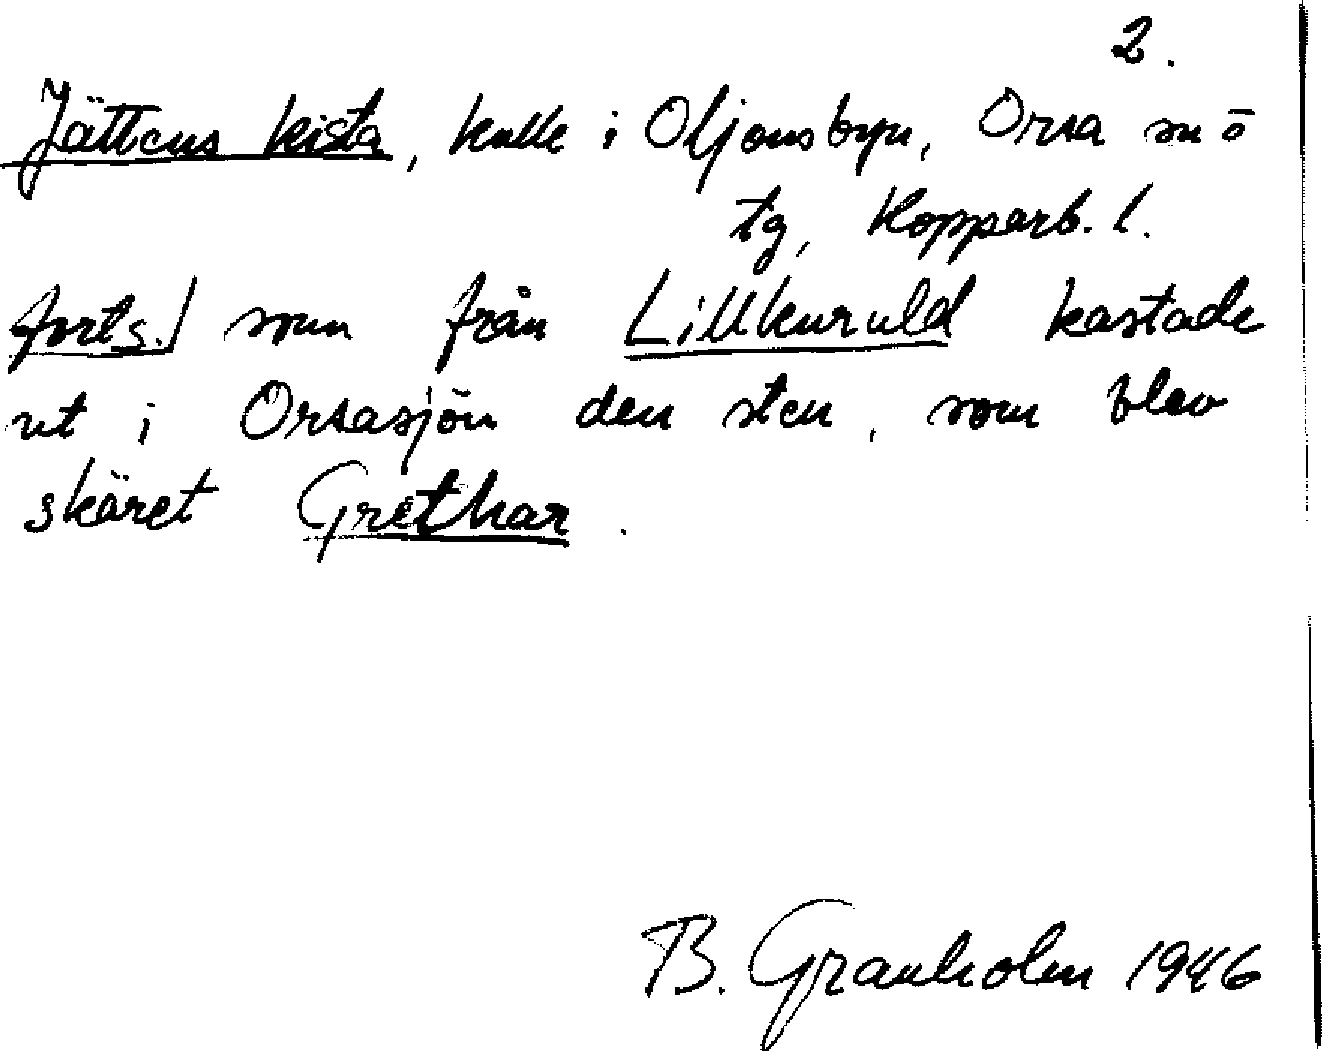 2.
Jättens kista, kulle i Oljonsbyn, Orsa sn ö
tg, Kopparb. l.
forts./ som från Lillkuruld kastade
ut i Orsasjön den sten, som blev
skäret Grethar.
B. Granholm 1946